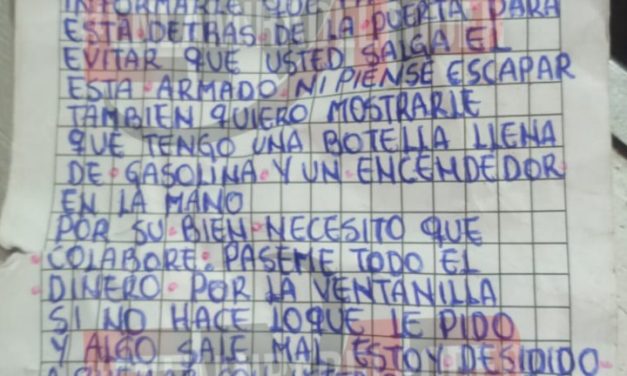 INFORMARLE QUE
ESTA DETRAS DE LA PUERTA PARA
EVITAR QUE USTED SALGA EL
ESTA ARMADO NI PIENSE ESCAPAR
TAMBIEN QUIERO MOSTRARLE
QUE TENGO UNA BOTELLA LLENA
DE GASOLINA Y UN ENCENDEDOR
EN LA MANO
POR SU BIEN NECESITO QUE
COLABORE. PASEME TODO EL
DINERO POR LA VENTANILLA
SI NO HACE LOQUE LE PIDO
Y ALGO SALE MAL ESTOY DESIDIDO